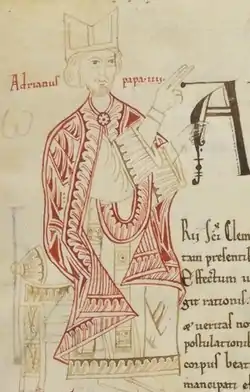 Adrianus papa. iiii.
A
Rii sci Clem
tam presenti
Effectum u
git rationis.
& ueritas no
postulationi
corpus beat
mancipari e